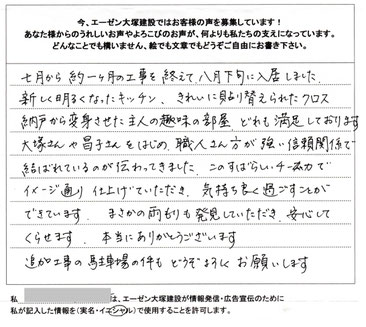 今、エーゼン大塚建設ではお客様の声を募集しています！
あなた様からのうれしいお声やよろこびのお声が、何よりも私たちの支えになっています。
どんなことでも構いません、絵でも文章でもどうぞご自由にお書き下さい。
七月から約一ヶ月の工事を終えて、八月下旬に入居しました。
新しく明るくなったキッチン、きれいに貼り替えられたクロス
納戸から変身させた主人の趣味の部屋、どれも満足しております
大塚さんや昌子さんをはじめ、職人さん方が強い信頼関係で
結ばれているのが伝わってきました。このすばらしいチーム力で
イメージ通り仕上げていただき、気持ち良く過ごすことが
できています。まさかの雨もりも発見していただき、安心して
くらせます。本当にありがとうございます
追加工事の駐車場の件もどうぞよろしくお願いします
私　は、エーゼン大塚建設が情報発信・広告宣伝のために
私が記入した情報を(実名・イニシャル)で使用することを許可します。